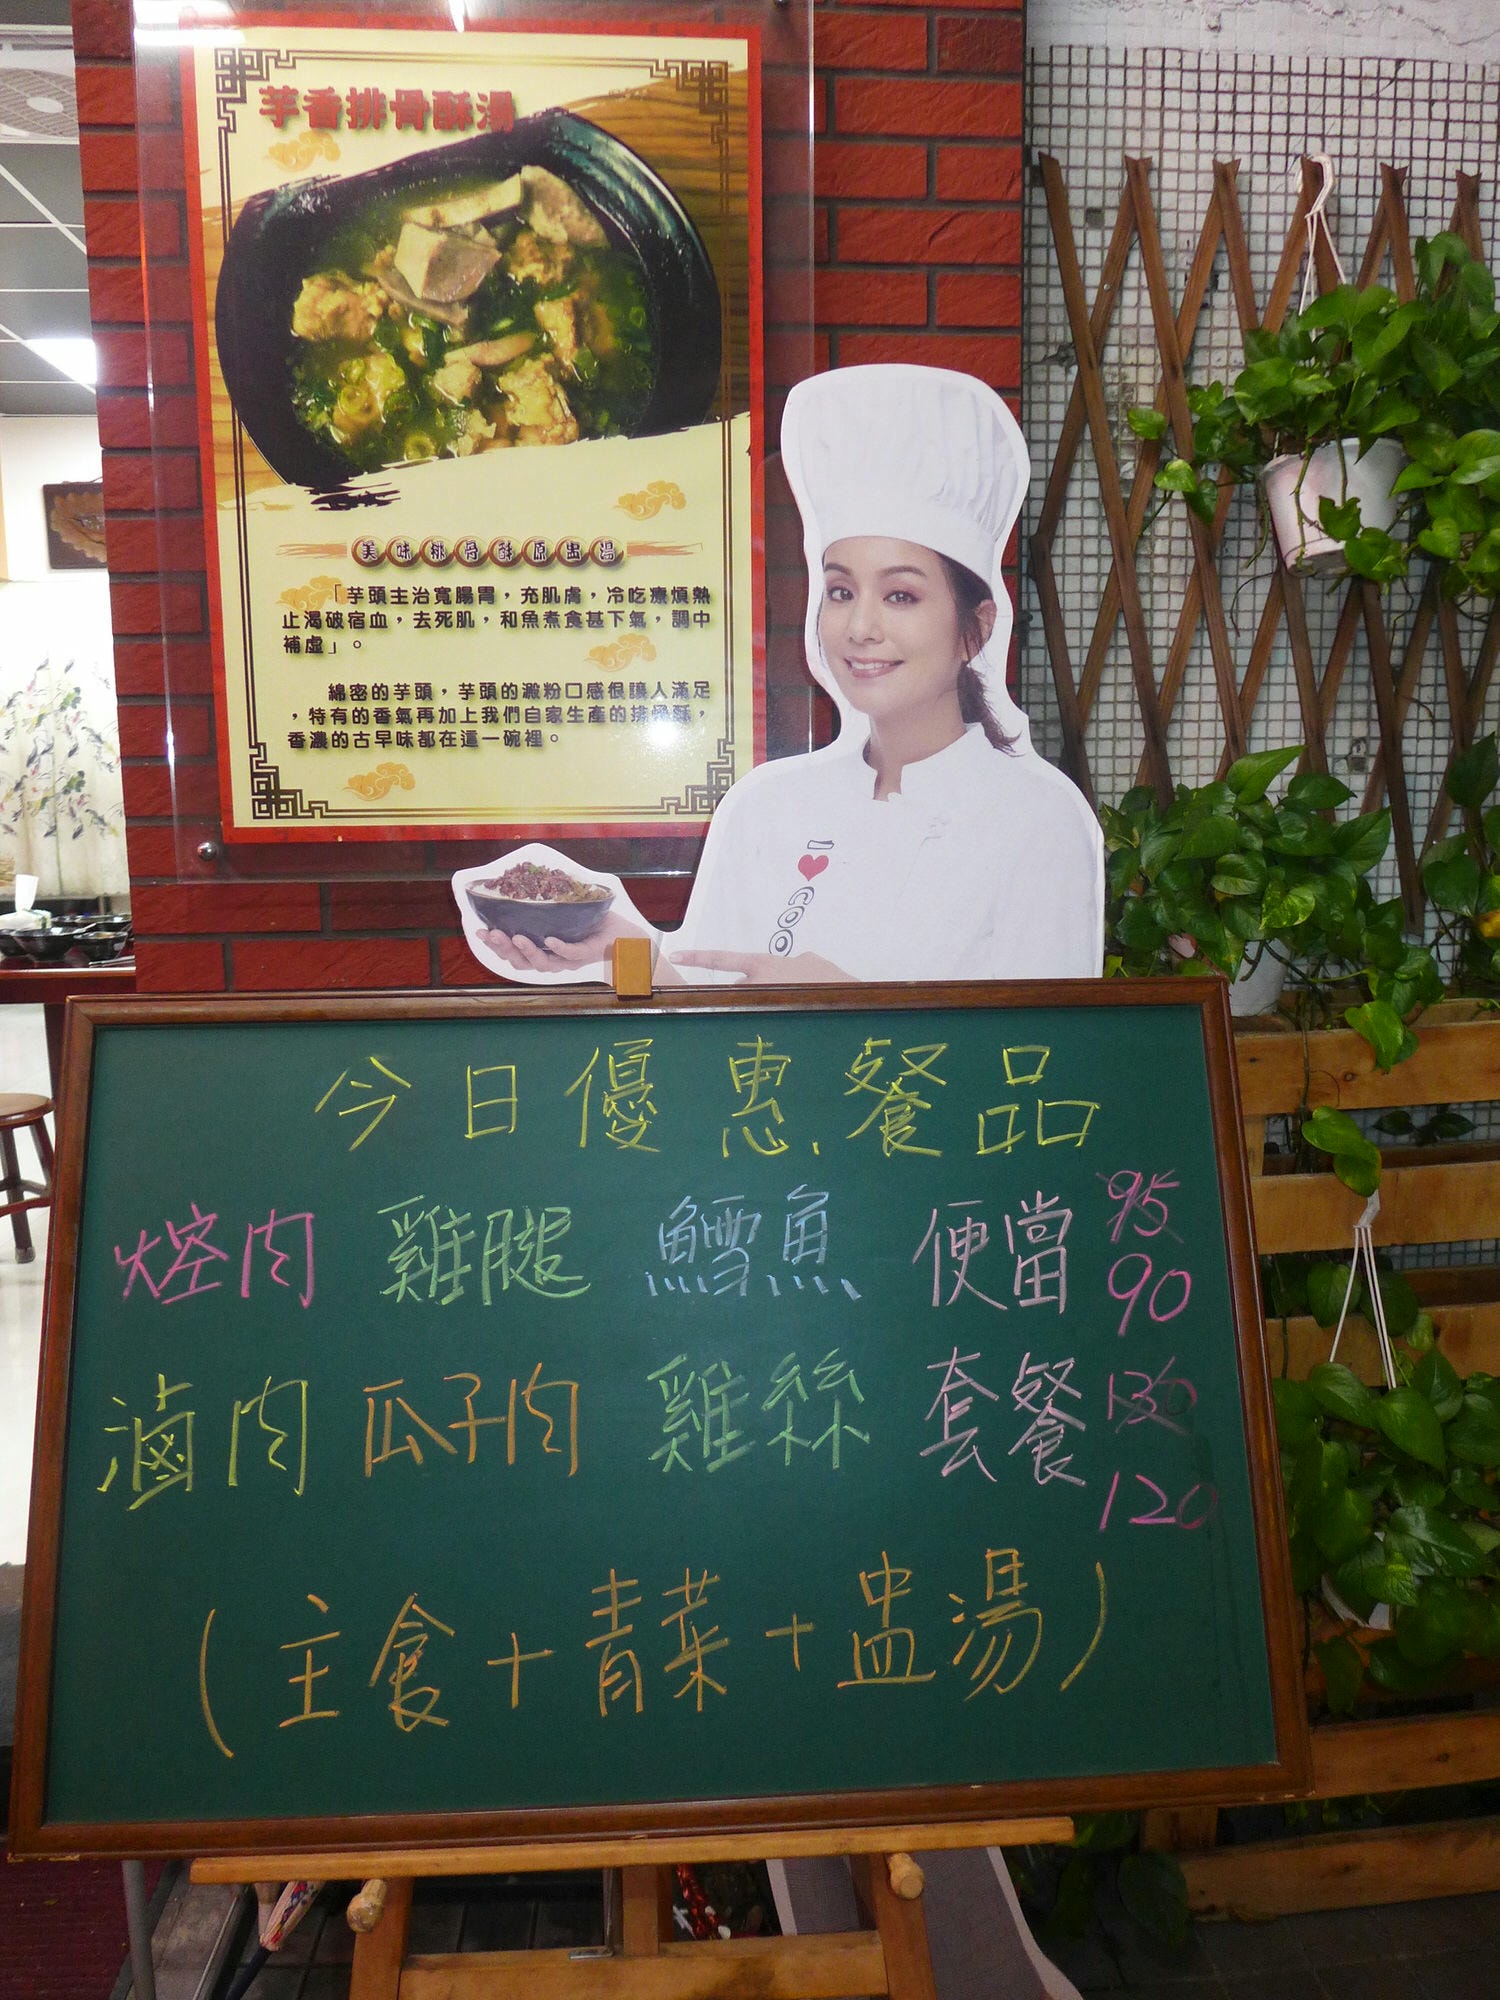 芋香排骨酥湯
美味排骨酥原盅湯
「芋頭主治寬腸胃，充肌膚，冷吃療煩熱
止渴破宿血，去死肌，和魚煮食甚下氣，調中
補虛」。
綿密的芋頭，芋頭的澱粉口感很讓人滿足
，特有的香氣再加上我們自家生產的排骨酥，
香濃的古早味都在這一碗裡。
今日優惠餐品
焢肉 雞腿 鱈魚 便當 95
90
滷肉 瓜子肉 雞絲 套餐 130
120
(主食+青菜+盅湯)